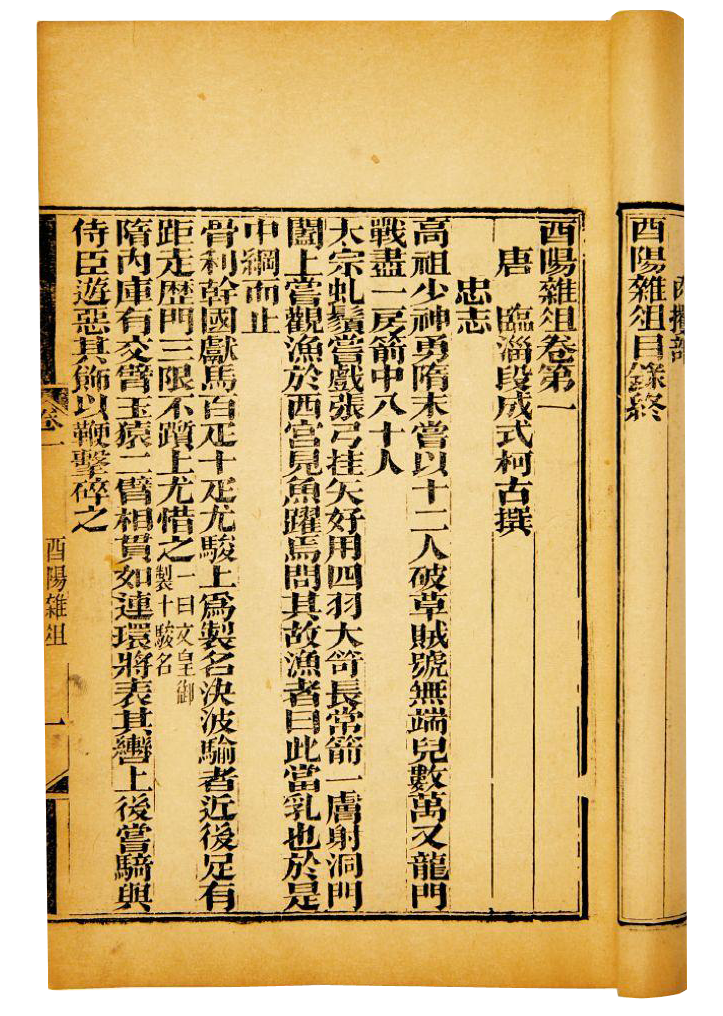 酉陽雜俎目錄終
酉陽雜俎卷第一
唐　臨淄段成式柯古撰
忠志
高祖少神勇隋末嘗以十二人破草賊號無端兒數萬又龍門
戰盡一房箭中八十人
太宗虬鬚嘗戲張弓挂矢好用四羽大笴長常箭一膚射洞門
闔上嘗觀漁於西宮見魚躍焉問其故漁者曰此當乳也於是
中綱而止
骨利幹國獻馬百疋十疋尤駿上爲製名決波騟者近後足有
距走歴門三限不躓上尤惜之
一曰文皇御
製十駿名
隋內庫有交臂玉猿二臂相貫如連環將表其轡上後嘗騎與
侍臣遊惡其飾以鞭擊碎之
卷一
酉陽雜俎
一